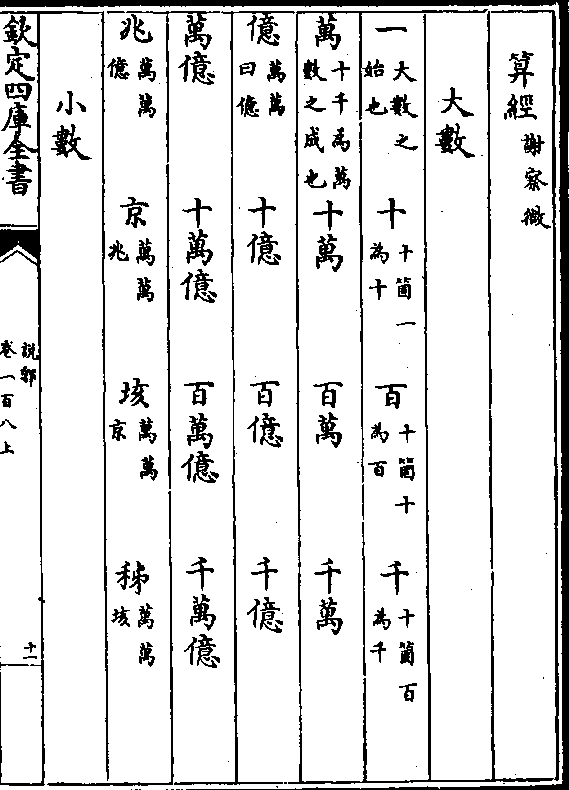 算經 謝察微
大數
一 大數之始也 十 十箇一為十 百 十箇十為百 千 十箇百為千
萬 十千為萬數之成也 十萬 百萬 千萬
億 萬萬曰億 十億 百億 千億
萬億 十萬億 百萬億 千萬億
兆 萬萬億 京 萬萬兆 垓 萬萬京 秭 萬萬垓
小數
欽定四庫全書 說郛 卷一百八上 十一